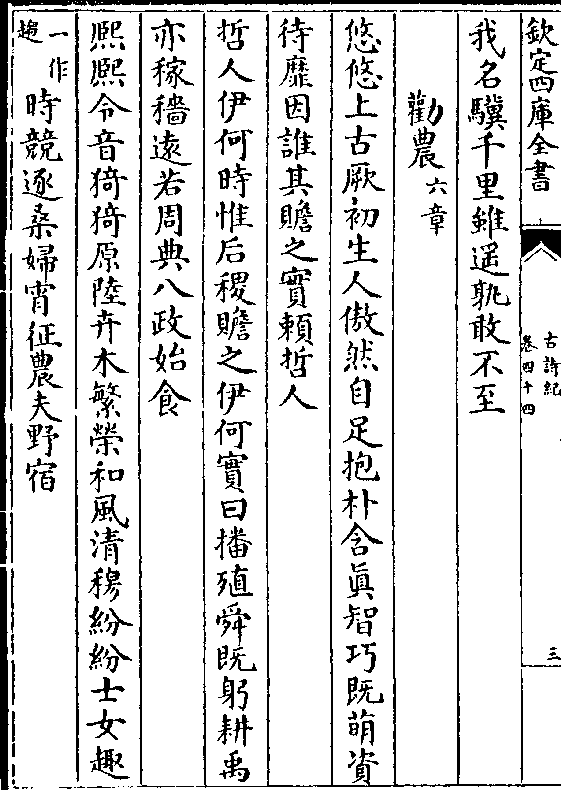 欽定四庫全書
古詩紀
卷四十四
三
我名驥千里雖遥孰敢不至
勸農六章
悠悠上古厥初生人傲然自足抱朴含真智巧既萌資
待靡因誰其贍之實頼哲人
哲人伊何時惟后稷贍之伊何實曰播殖舜既躬耕禹
亦稼穡遠若周典八政始食
熙熙令音猗猗原陸卉木繁榮和風清穆紛紛士女趣
一作趨時競逐桑婦宵征農夫野宿